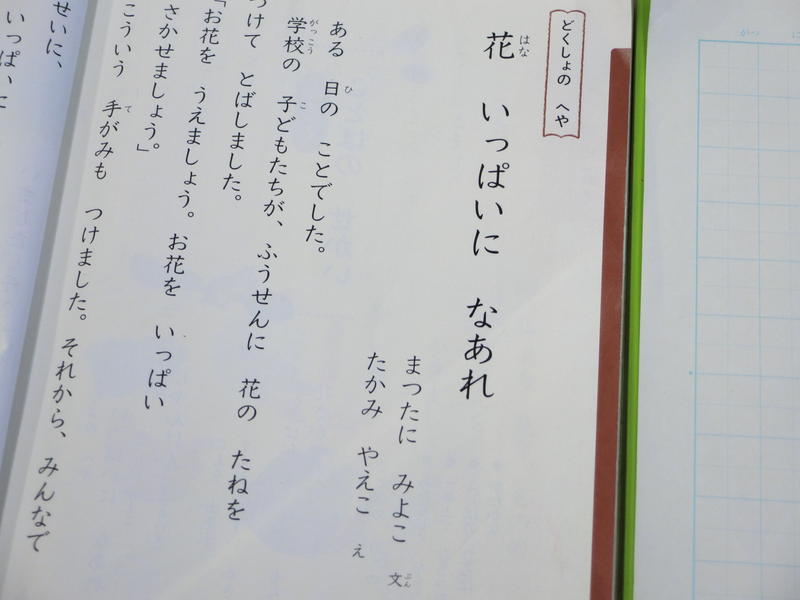 どくしょの へや
花 いっぱいに なあれ
まつたに みよこ 文
たかみ やえこ え
ある 日の ことでした。
学校の 子どもたちが、ふうせんに 花の たねを
つけて とばしました。
「お花を うえましょう。お花を いっぱい
さかせましょう。」
こういう 手がみも つけました。それから、みんなで
せいに、
いっぱいに